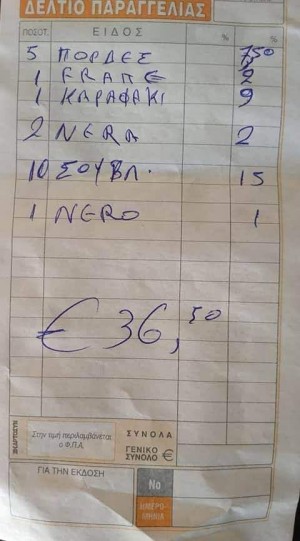 ΔΕΛΤΙΟ ΠΑΡΑΓΓΕΛΙΑΣ
ΠΟΣΟΤ. ΕΙΔΟΣ % %
5 ΠΟΡΔΕΣ 7,50
1 FRAΠE 2
1 ΚΑΡΑΦΑΚΙ 9
2 NERA 2
10 ΣΟΥΒΛ. 15
1 NERO 1
€ 36,50
Στην τιμή περιλαμβάνεται
ο Φ.Π.Α.
ΣΥΝΟΛΑ
ΓΕΝΙΚΟ
ΣΥΝΟΛΟ €
ΓΙΑ ΤΗΝ ΕΚΔΟΣΗ
No
ΗΜΕΡΟ-
ΜΗΝΙΑ